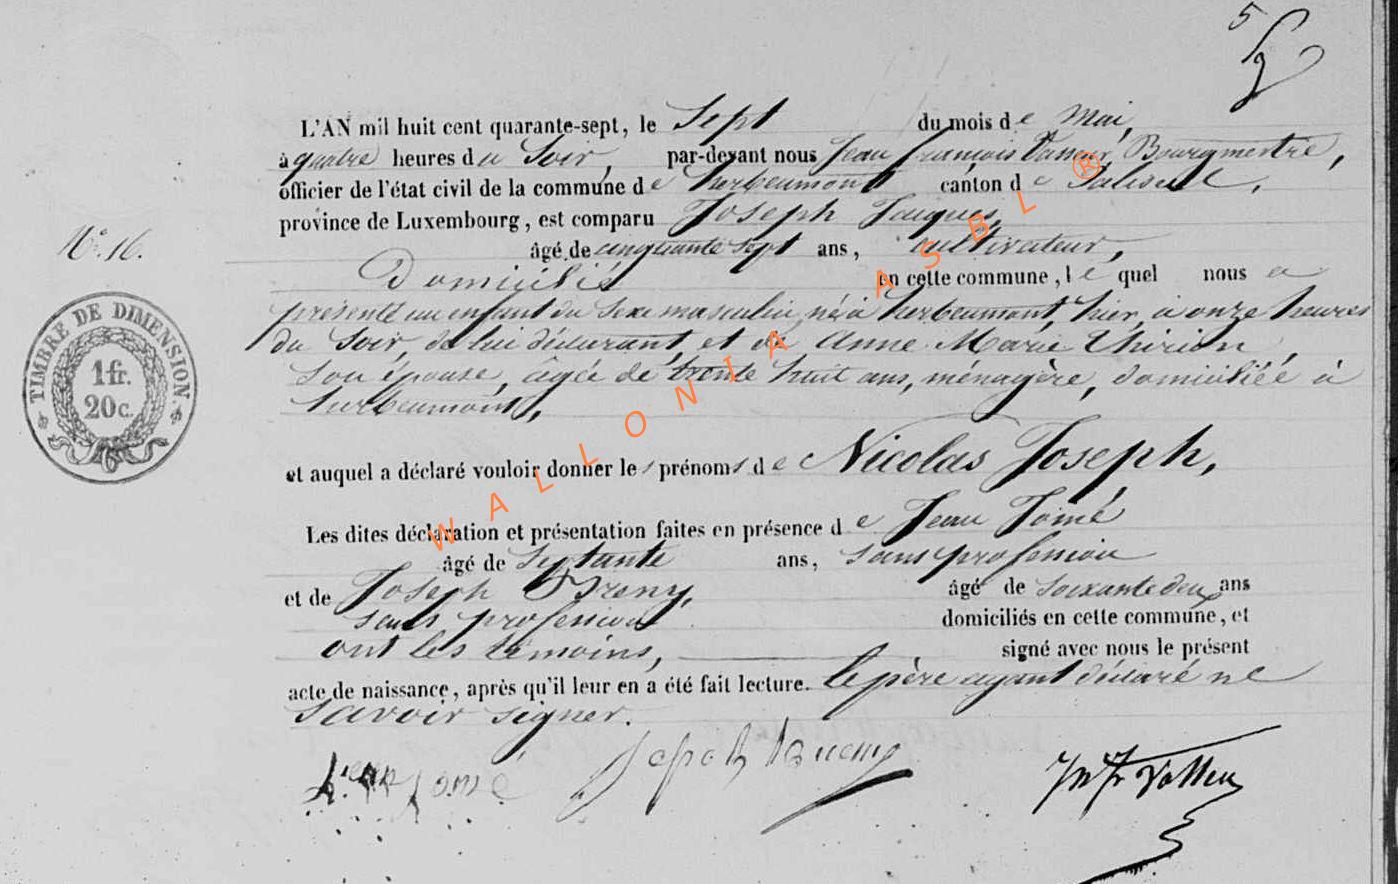 5
L'AN mil huit cent quarante-sept, le Sept du mois de Mai,
à quatre heures du Soir, par-devant nous Jean françois Bourgmestre,
officier de l'état civil de la commune de herbeumont canton de Paliseul,
province de Luxembourg, est comparu Joseph Jacques,
N° 16.
âgé de cinquante sept ans, cultivateur,
Domicilié en cette commune, lequel nous a
présenté un enfant du sexe masculin, né à herbeumont, hier, à onze heures
du Soir, de lui déclarant, et de Anne Marie Thirion,
son épouse, âgée de trente huit ans, ménagère, domiciliée à
herbeumont,
TIMBRE DE DIMENSION.
1fr.
20c.
et auquel a déclaré vouloir donner les prénoms de Nicolas Joseph,
Les dites déclaration et présentation faites en présence de Jean Jomé
âgé de septante ans, sans profession
et de Joseph âgé de soixante deux ans
sans profession domiciliés en cette commune, et
ont les témoins, signé avec nous le présent
acte de naissance, après qu'il leur en a été fait lecture. le père ayant déclaré ne
savoir signer.
Jean Jomé Joseph
WALLONIA ASBL ®